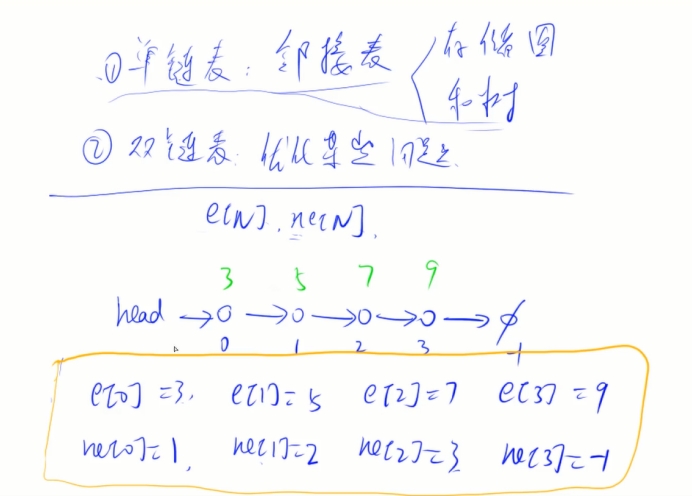 ① 单链表：邻接表 存储图
和树
② 双链表：优化某些问题
e[N], ne[N].
3 5 7 9
head → o → o → o → o → ∅
0 1 2 3 -1
e[0]=3, e[1]=5 e[2]=7 e[3]=9
ne[0]=1, ne[1]=2 ne[2]=3 ne[3]=-1